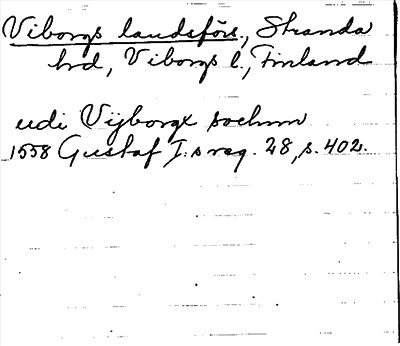 Viborgs landsförs., Stranda
hrd, Viborgs l., Finland
udi Vijborgx sochnn
1558 Gustaf I:s reg. 28, s. 402.